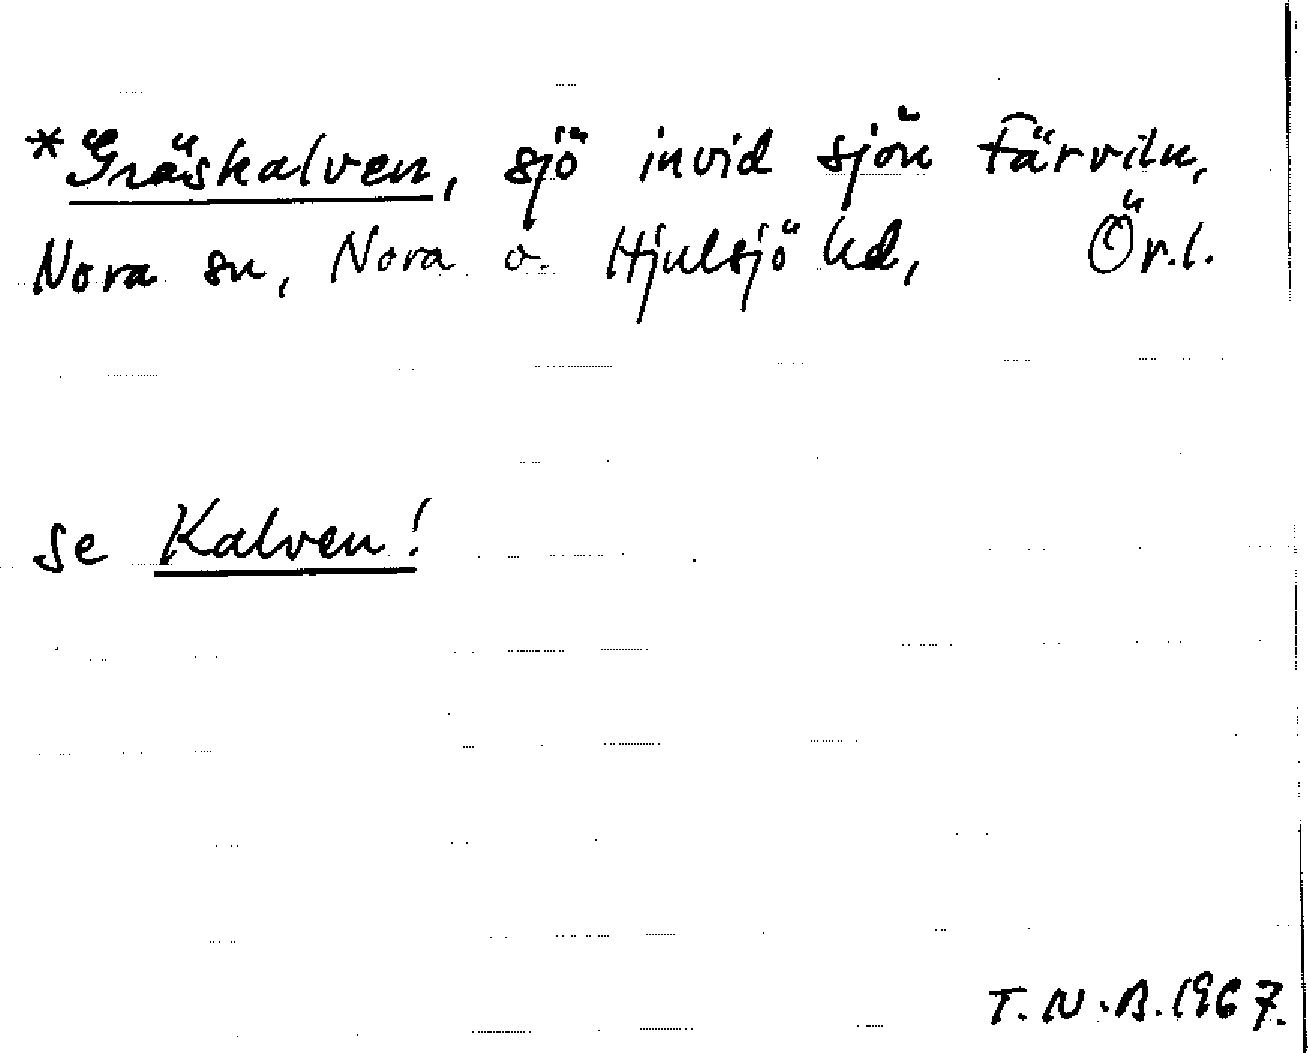 *Gräskalven, sjö invid sjön Färviln,
Nora sn, Nora o. Hjulsjö hd, Ör.l.
se Kalven!
T.N.B. 1967.